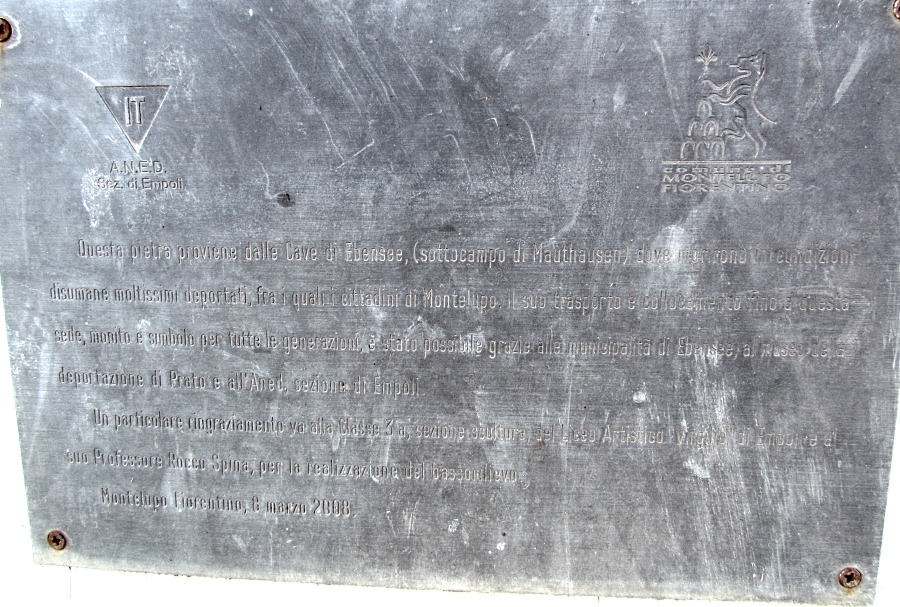 IT
A.N.E.D.
Sez. di Empoli
comune di
MONTELUPO
FIORENTINO
Questa pietra proviene dalle Cave di Ebensee, (sottocampo di Mauthausen) dove morirono in condizioni
disumane moltissimi deportati, fra i quali i cittadini di Montelupo. Il suo trasporto e collocamento fino a questa
sede, monito e simbolo per tutte le generazioni, è stato possibile grazie alla municipalità di Ebensee, al Museo della
deportazione di Prato e all'Aned, sezione di Empoli.
Un particolare ringraziamento va alla classe 3 a, sezione scultura, del Liceo Artistico Virgilio di Empoli e al
suo Professore Rocco Spina, per la realizzazione del bassorilievo.
Montelupo Fiorentino, 8 marzo 2008.